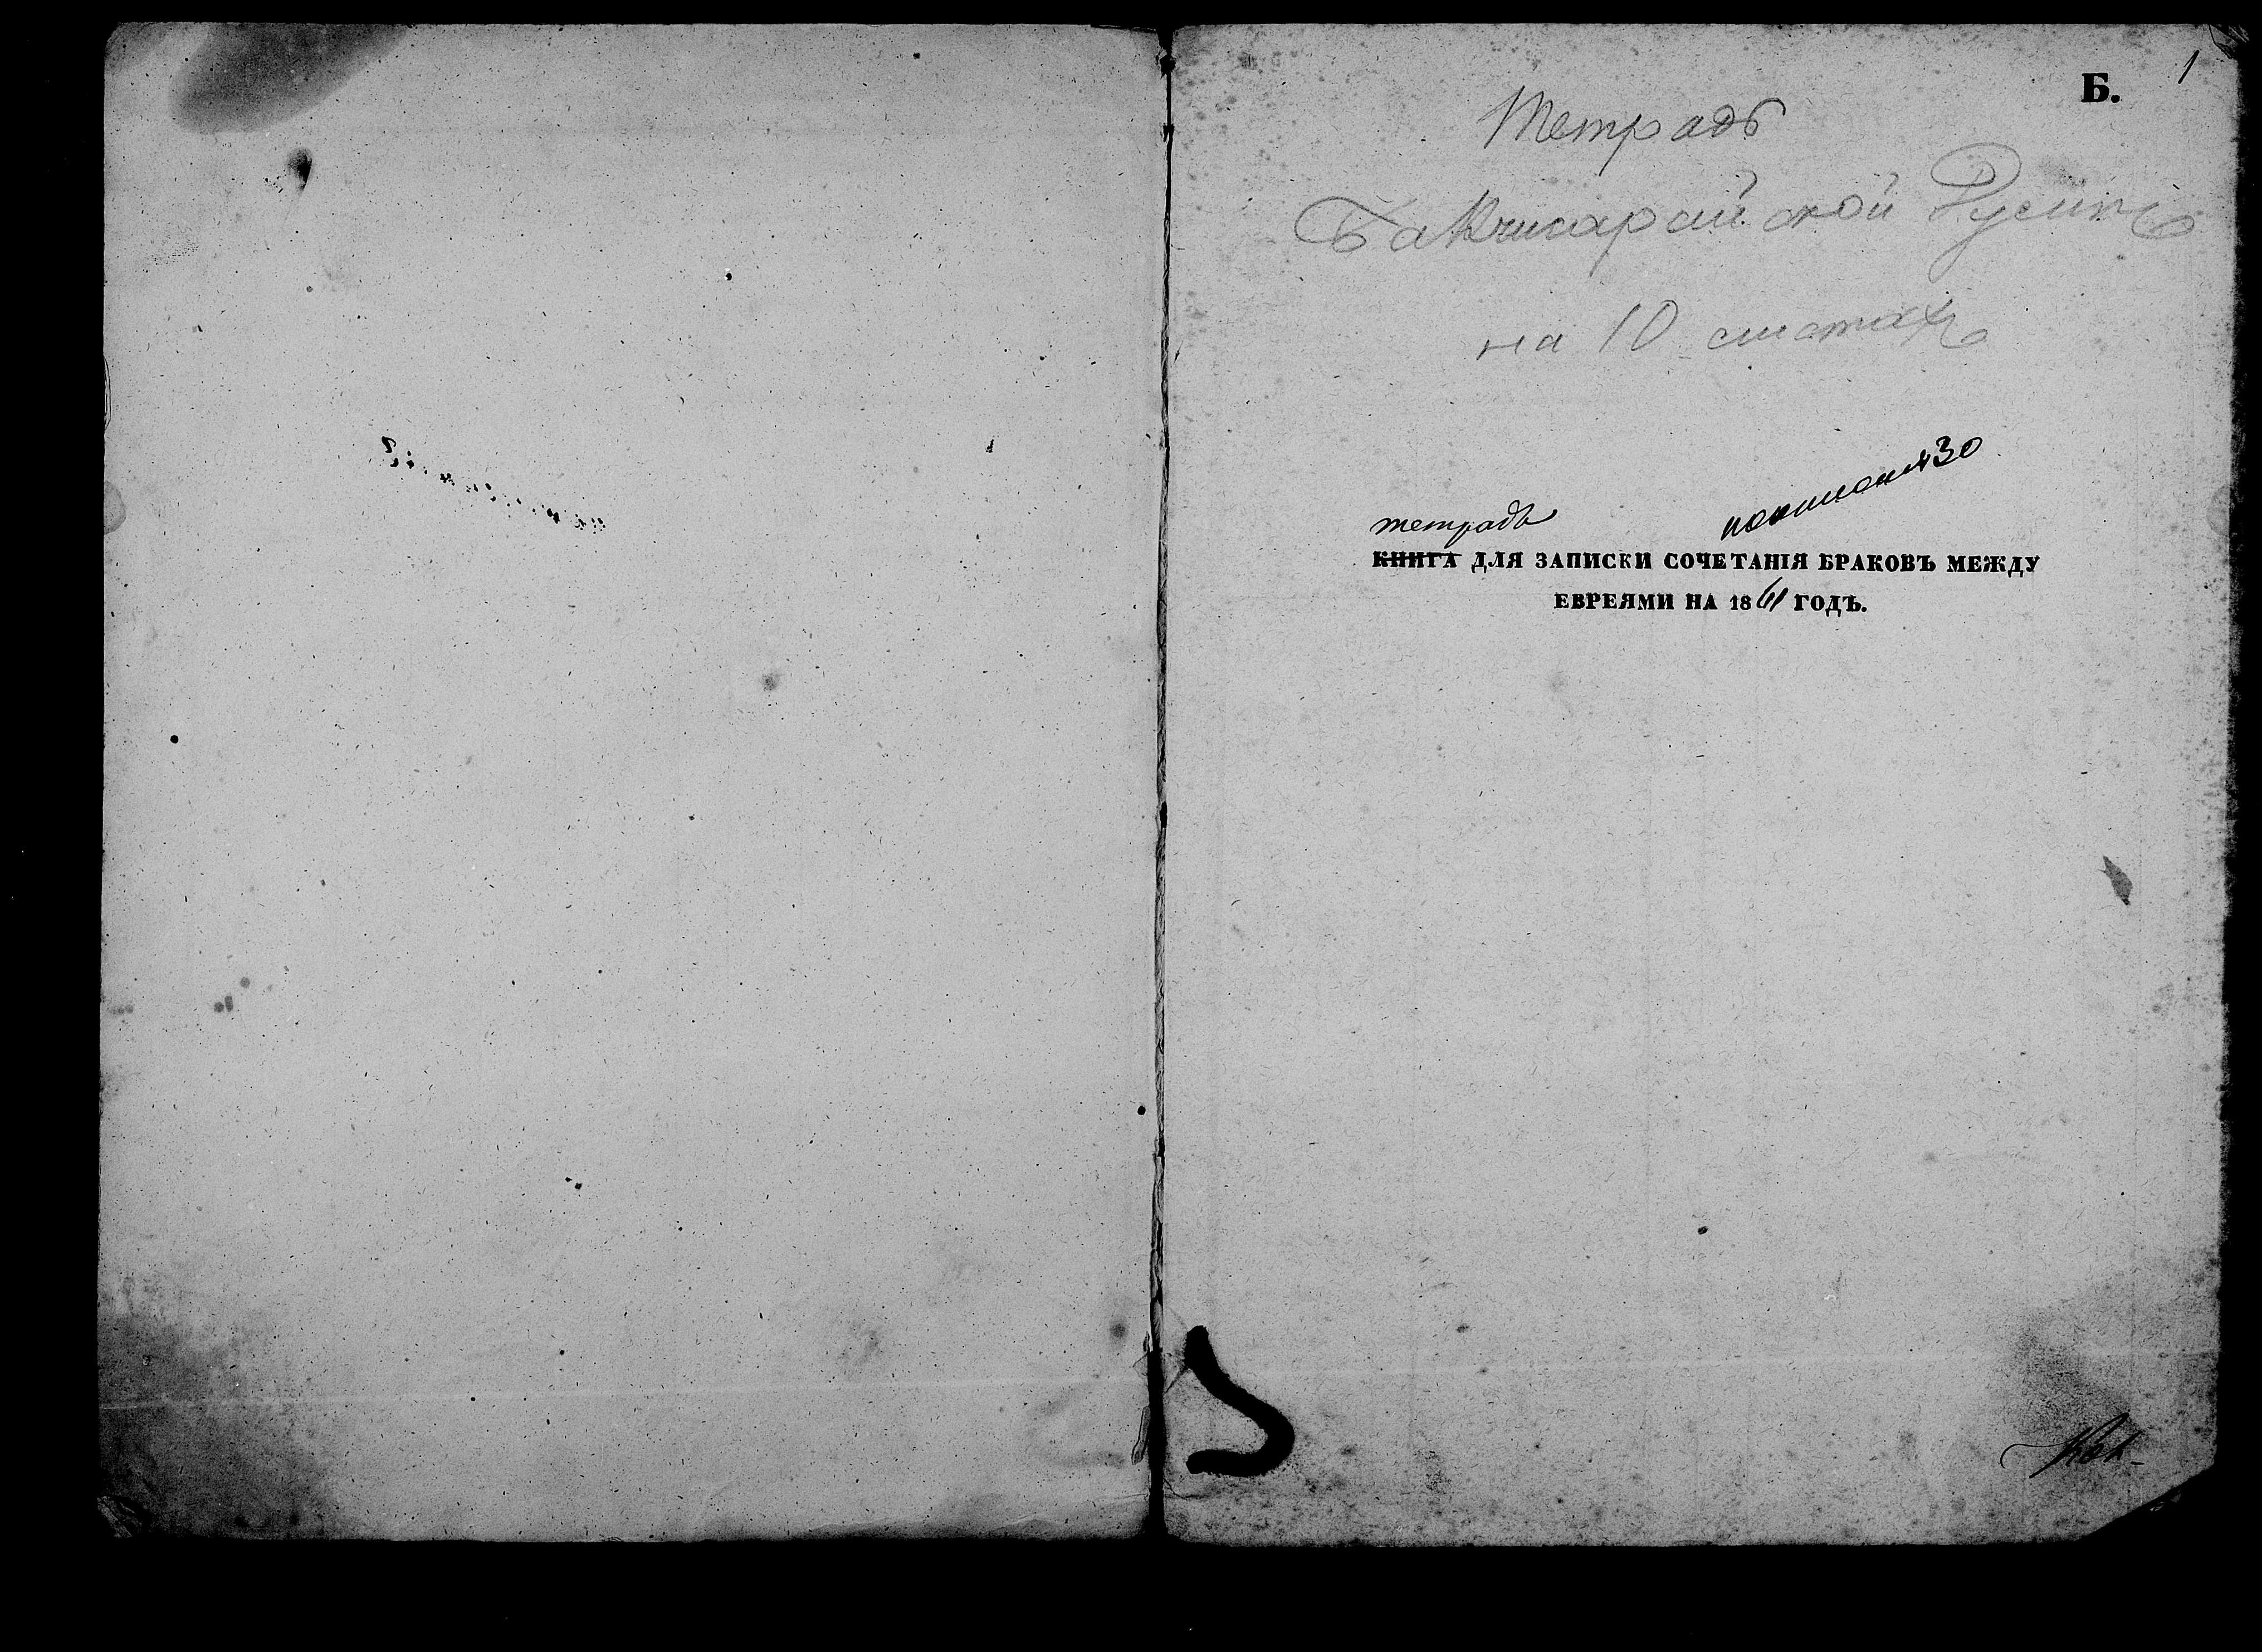 Б. 1
Тетрадь
Бакчисарайской
на 10 листахъ
№ 30
тетрадь
КНИГА ДЛЯ ЗАПИСКИ СОЧЕТАНІЯ БРАКОВЪ МЕЖДУ
ЕВРЕЯМИ НА 1861 ГОДЪ.